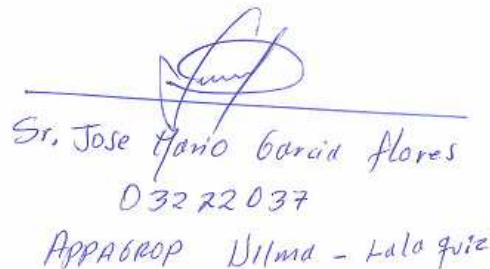 Sr. Jose Mario Garcia flores
03222037
APPAGROP Vilma - Lalaquiz